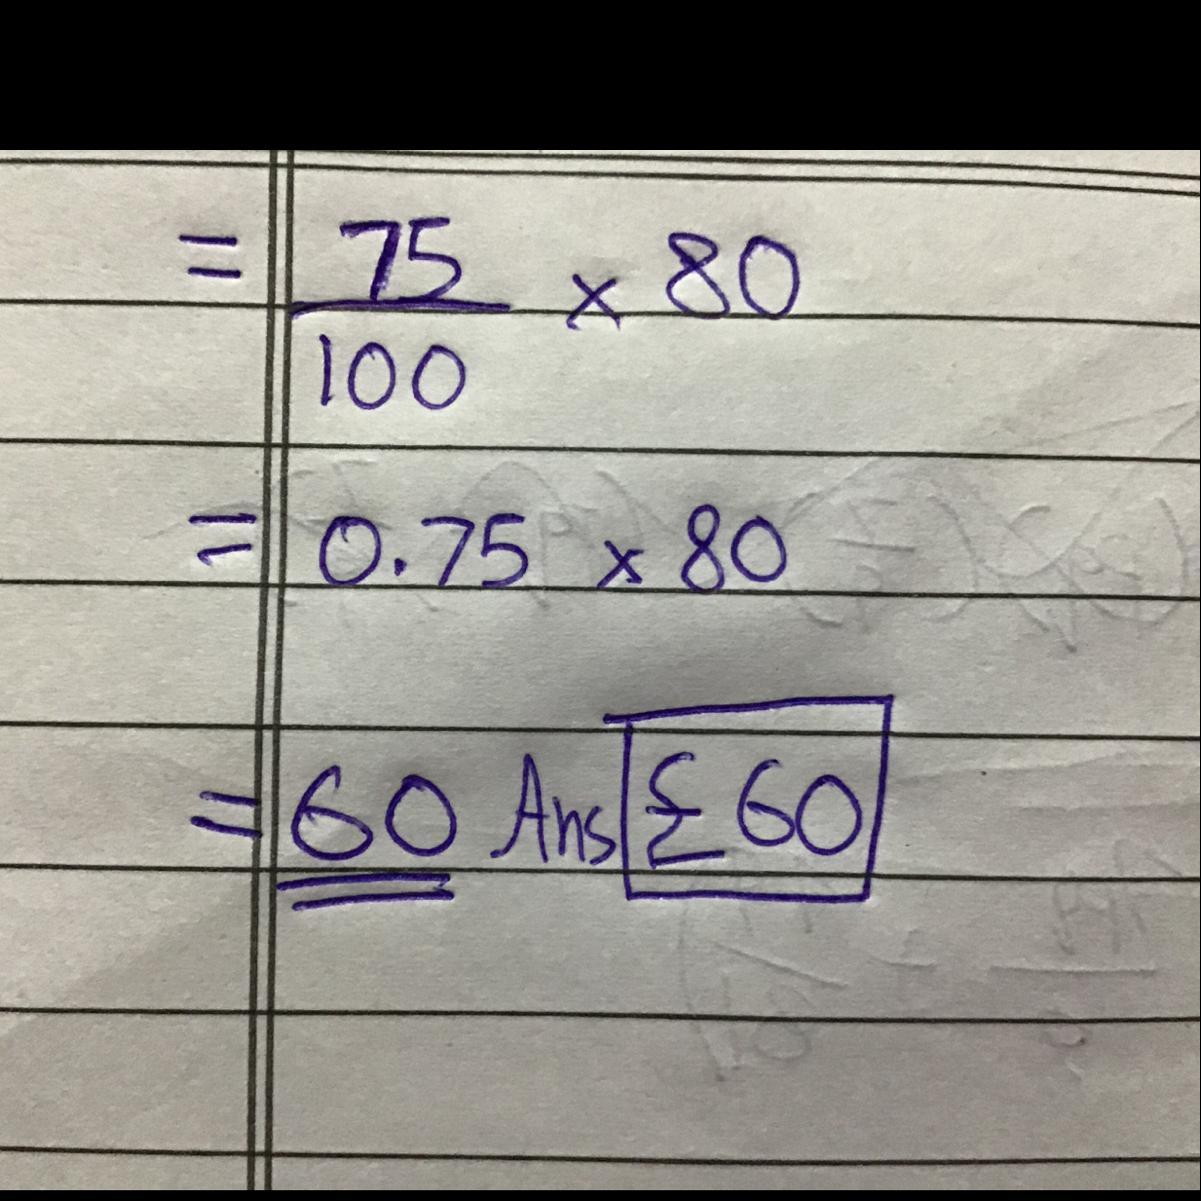 = 75/100 × 80
= 0.75 × 80
= 60 Ans £60